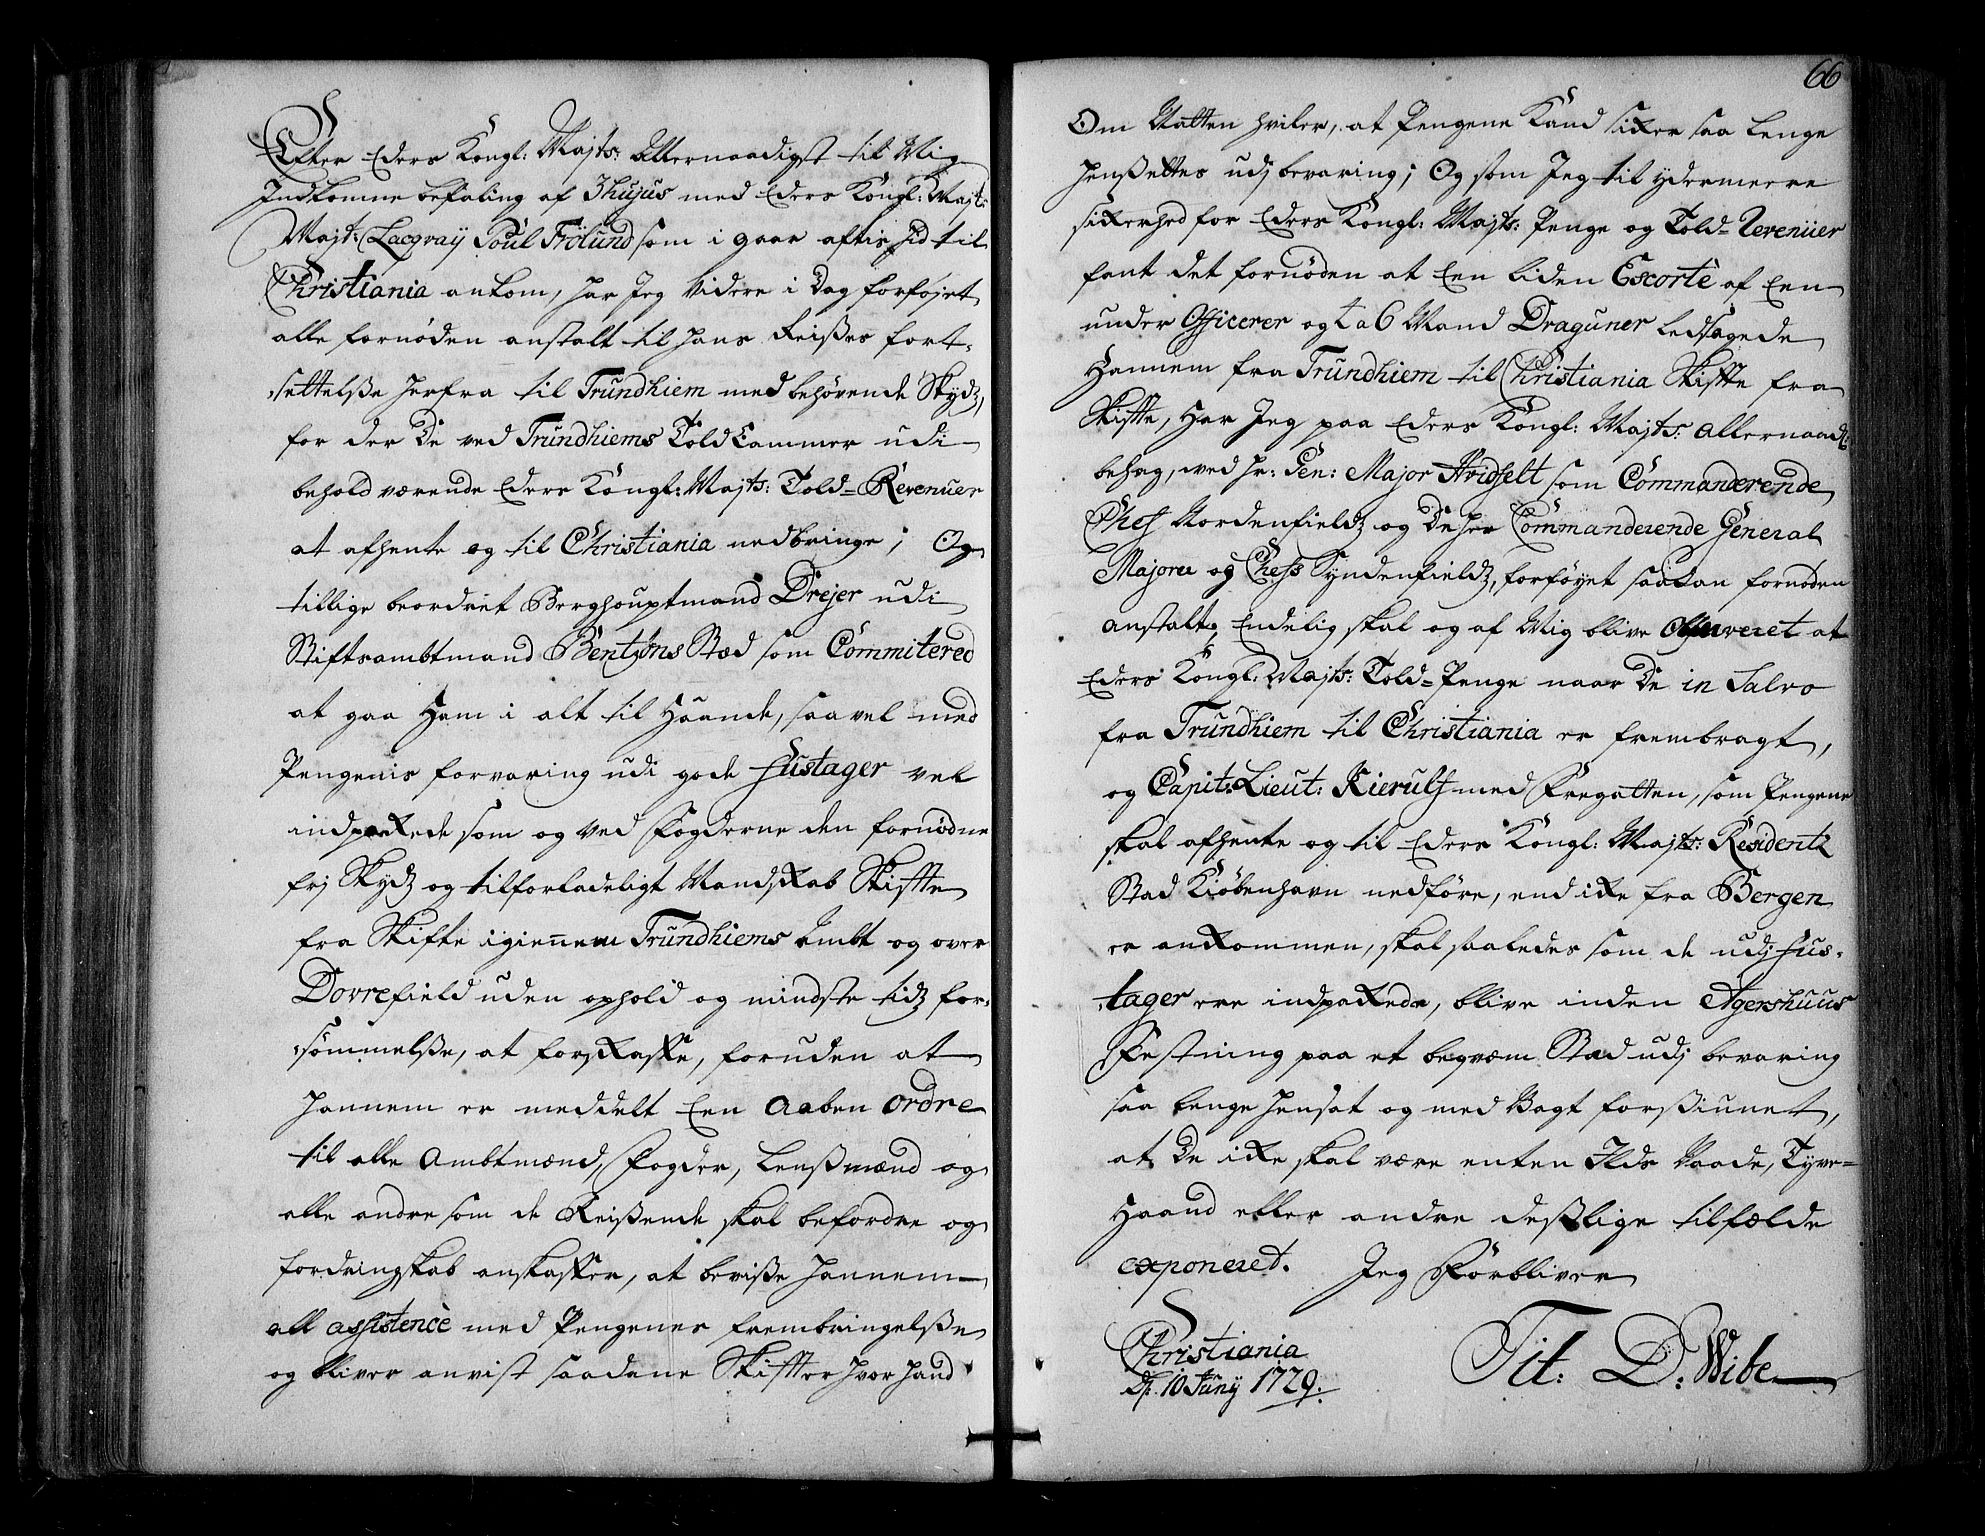 Efter Eders Kongl: Majts: Allernaadigst til Mig
Indkomne befaling af 3 hujus med Eders Kongl: Majts:
Majt: Lacqvay Poul Frölund som i gaar aftis hid til
Christiania ankom, har Jeg Videre i Dag forföjet
alle fornøden anstalt til hans Reißes fort-
settelße herfra til Trundhiem med behøvende Skydz,
for der De ved Trundhiems Told Cammer udi
behold værende Eders Kongl: Majts: Told-Revenüer
at afhente og til Christiania nedbringe; Og
tillige beordret Berghouptmand Drejer udi
Stiftsambtmand Bentzons Stæd som Committered
at gaa Ham i alt til Haande, saavel med
Pengenis forvaring udi gode Fustager vel
indpakkede som og ved Fogderne den fornødne
frj Skydz og tilforladeligt Mandskab Skifte
fra Skifte igiennem Trundhiems Ambt og over
Dovrefield uden ophold og mindste tidz for-
sömmelße, at forskaffe, foruden at
hannem er meddelt Een Aaben Ordre
til alle Ambtmænd, Fogder, Lenßmænd og
alle andre som de Reißende skal befordre og
fordringskab anskaffer, at beviße hannem
all assistencè med Pengenes frembringelße
og bliver anvist saadane Skifter hvor hand
66
Om Natten hviler, at Pengene Kand sikker saa lenge
henßettes udj bevaring; Og som Jeg til ydermeere
sikkerhed for Eders Kongl: Majts: Penge og Told-Revenüer
fant det fornøden at Een liden Escorte af Een
under Officerer og 4 a 6 Mand Draguner ledsagede
Hannem fra Trundhiem til Christiania Skifte fra
Skifte, Har Jeg paa Eders Kongl: Majts: Allernaadl:
behag, med Hr: Gen: Major Hvidfelt som Commanderende
Chef Nordenfieldz og De her Commanderende General
Majorer og Chefs Syndenfieldz, forföyet saadan fornøden
anstalt, Endelig skal og af Mig blive Observeret at
Eders Kongl: Majts: Told-Penge naar De in Salvo
fra Trundhiem til Christiania er frembragt,
og Capit: Lieut: Kierulf med Fregatten, som Pengene
skal afhente og til Eders Kongl: Majts: Residentz
Stad Kiøbenhavn nedföre, end ikke fra Bergen
er ankommen, skal saaledes som de udj Fus-
tager ere indpakkede, blive inden Agershuus
Festning paa et beqvæm Stæd udj bevaring
saa lenge hensat og med Vagt forßiunet,
at De ikke skal være enten Ilds Vaade, Tyve-
Haand eller andre deßlige tilfælde
exponeret. Jeg Förbliver
Christiania
d: 10 Junij 1729.
Tit: D: Wibe